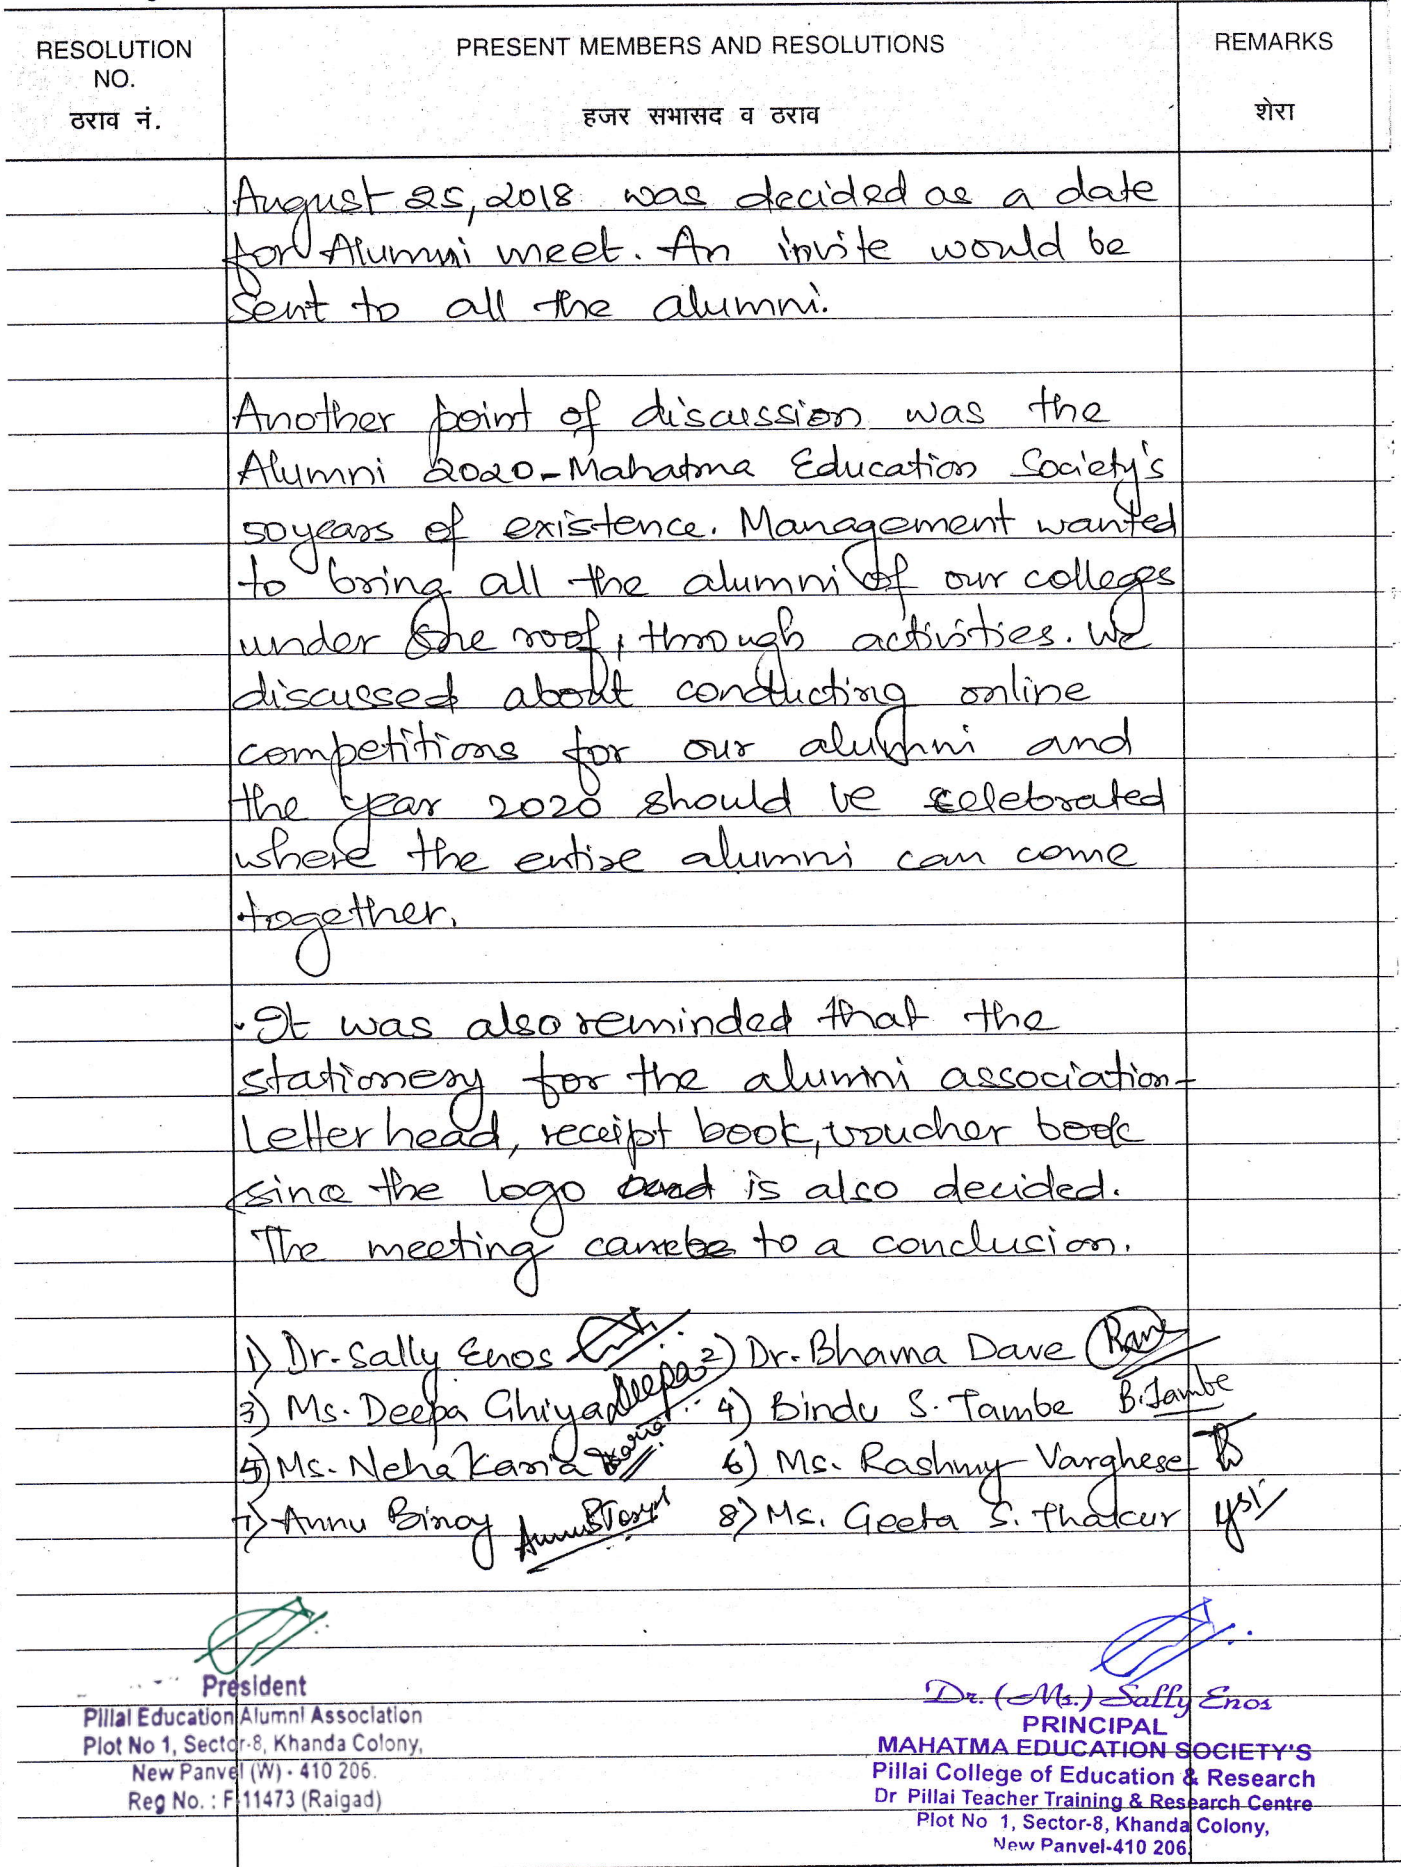 RESOLUTION NO.
ठराव नं.
PRESENT MEMBERS AND RESOLUTIONS
हजर सभासद व ठराव
REMARKS
शेरा
August 25, 2018 was decided as a date
for Alumni meet. An invite would be
sent to all the alumni.
Another point of discussion was the
Alumni 2020-Mahatma Education Society's
50 years of existence. Management wanted
to bring all the alumni of our colleges
under one roof, through activities. We
discussed about conducting online
competitions for our alumni and
the year 2020 should be celebrated
where the entire alumni can come
together.
It was also reminded that the
stationery for the alumni association-
Letter head, receipt book, voucher book
since the logo is also decided.
The meeting came to a conclusion.
1) Dr. Sally Enos 2) Dr. Bhama Dave
3) Ms. Deepa Ghiya Deepa 4) Bindu S. Tambe B. Tambe
5) Ms. Neha Karia Karia 6) Ms. Rashmy Varghese
7) Annu Binoy 8) Ms. Geeta S. Thakur
President
Pillai Education Alumni Association
Plot No 1, Sector-8, Khanda Colony,
New Panvel (W) - 410 206.
Reg No. : F-11473 (Raigad)
Dr. (Ms.) Sally Enos
PRINCIPAL
MAHATMA EDUCATION SOCIETY'S
Pillai College of Education & Research
Dr Pillai Teacher Training & Research Centre
Plot No 1, Sector-8, Khanda Colony,
New Panvel-410 206.